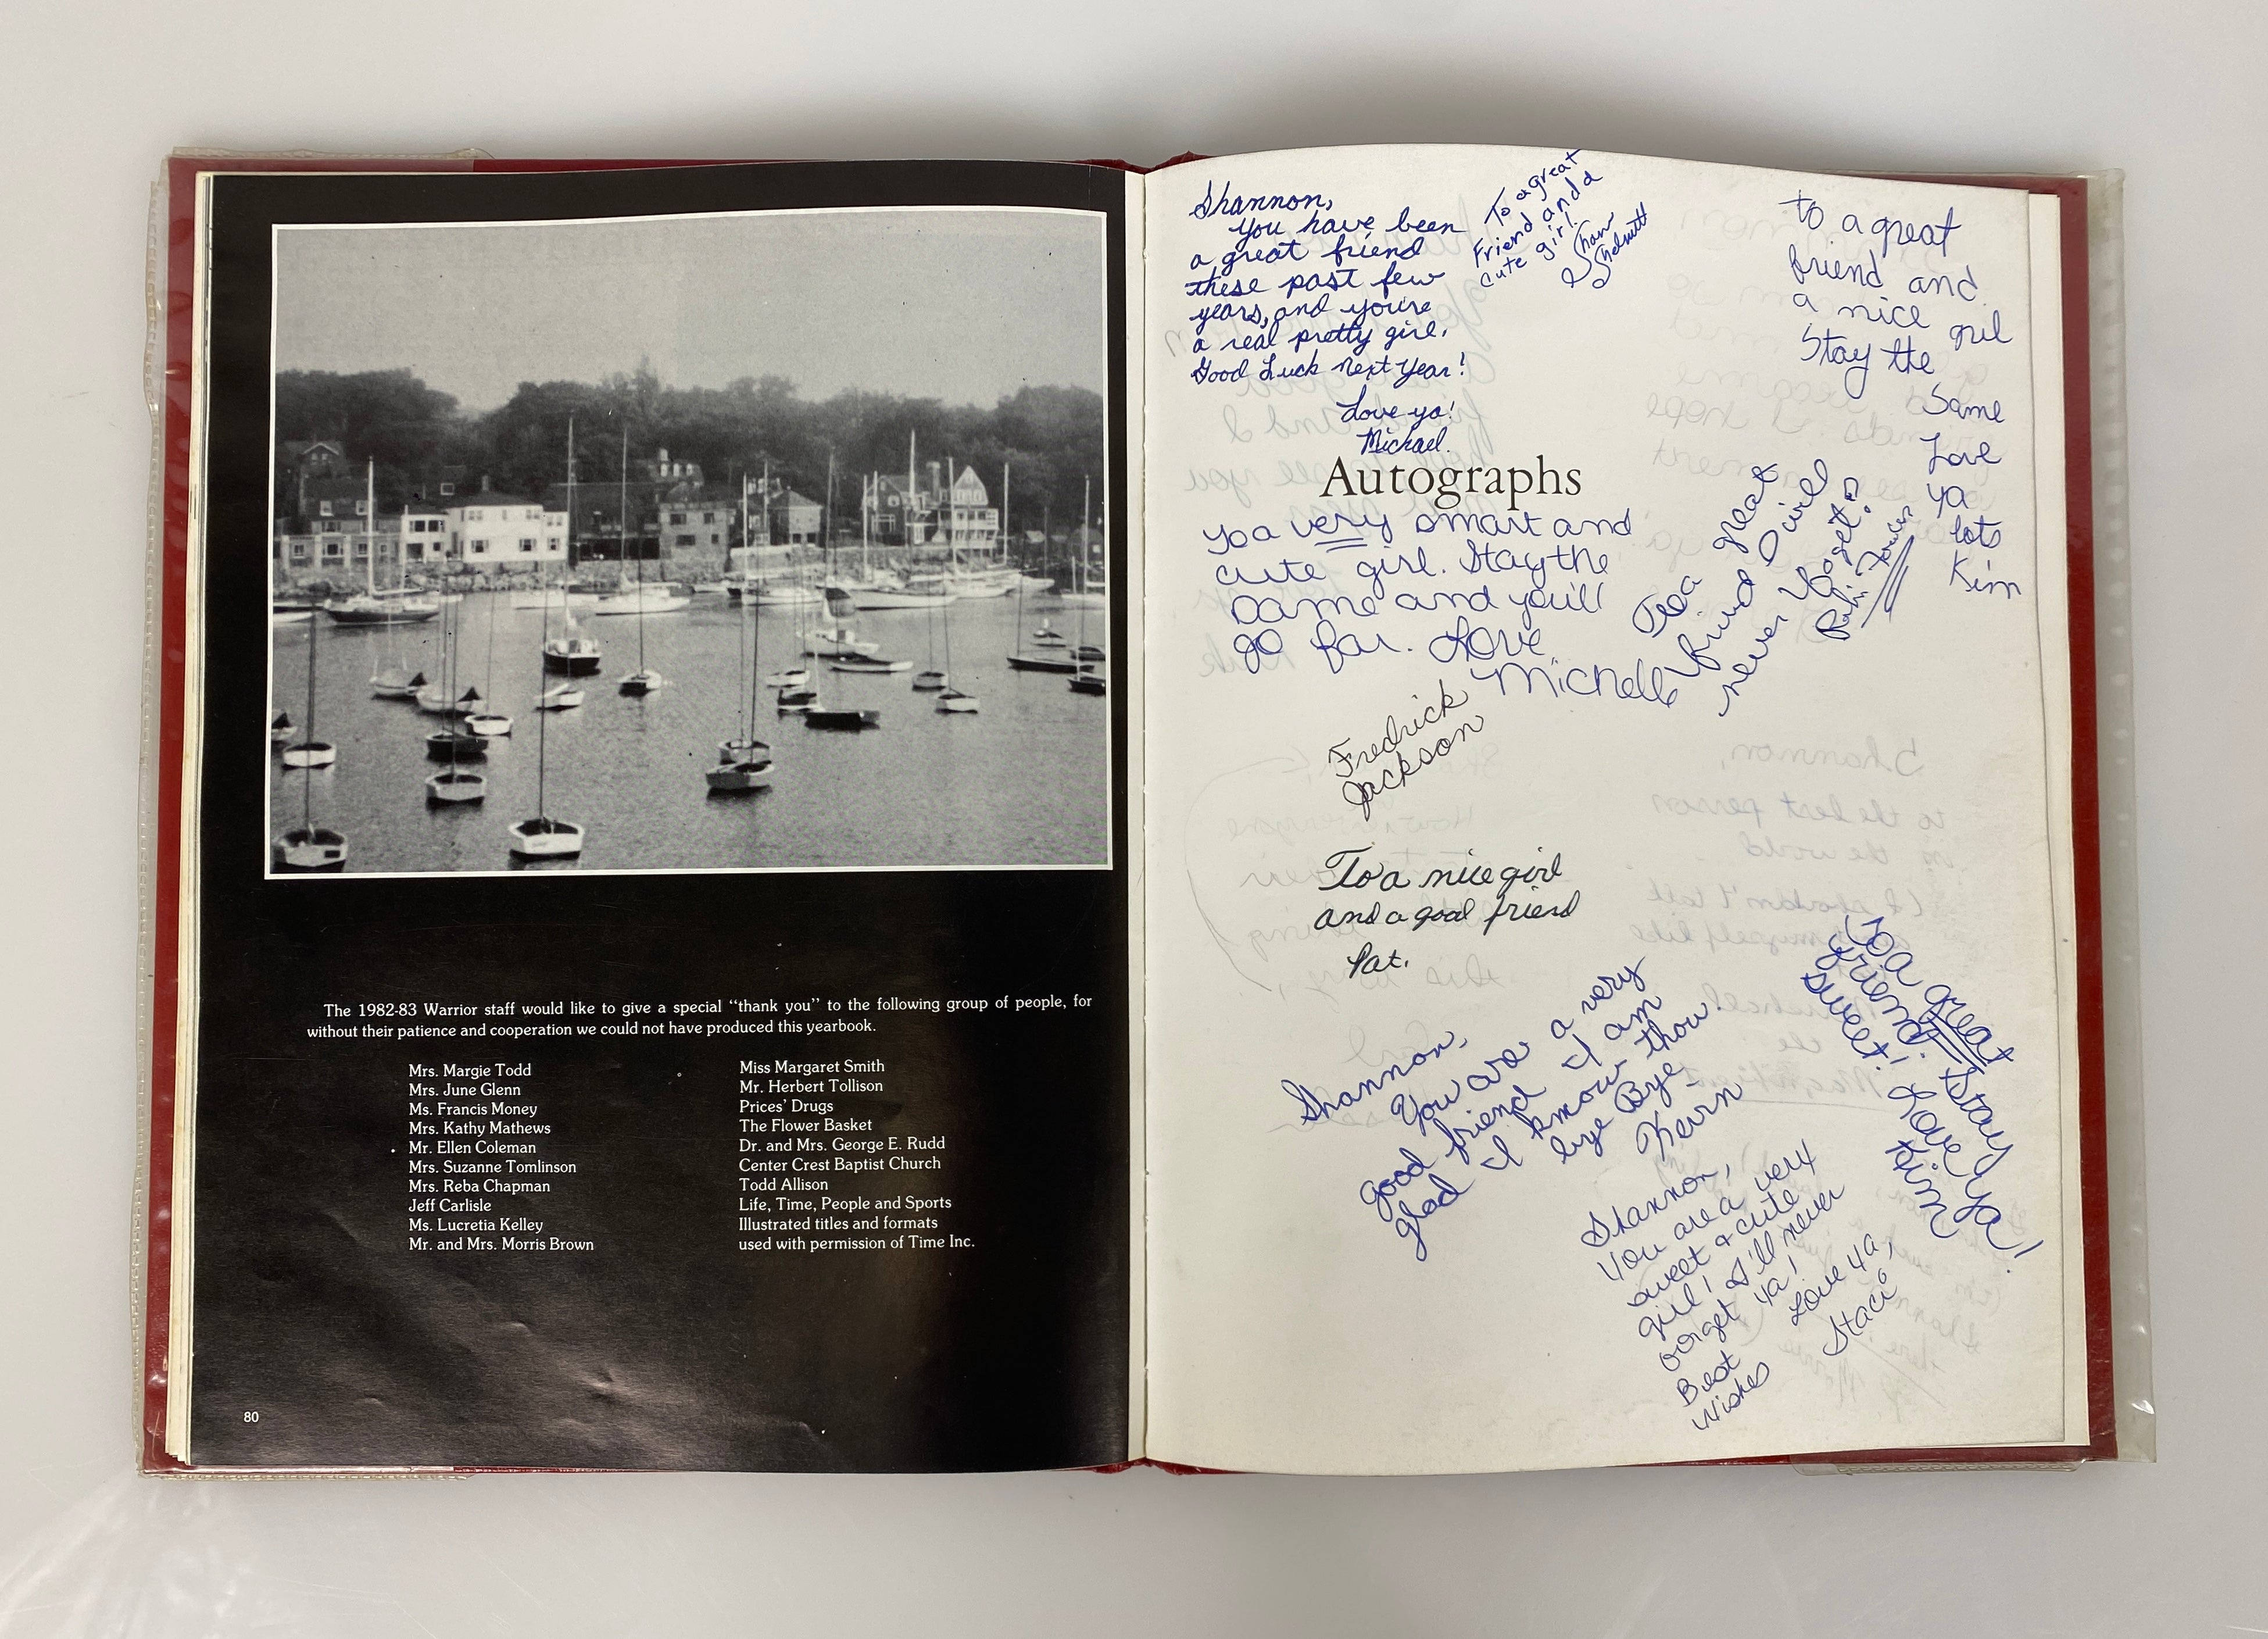 The 1982-83 Warrior staff would like to give a special “thank you” to the following group of people, for
without their patience and cooperation we could not have produced this yearbook.
Mrs. Margie Todd
Mrs. June Glenn
Ms. Francis Money
Mrs. Kathy Mathews
Mr. Ellen Coleman
Mrs. Suzanne Tomlinson
Mrs. Reba Chapman
Jeff Carlisle
Ms. Lucretia Kelley
Mr. and Mrs. Morris Brown
Miss Margaret Smith
Mr. Herbert Tollison
Prices’ Drugs
The Flower Basket
Dr. and Mrs. George E. Rudd
Center Crest Baptist Church
Todd Allison
Life, Time, People and Sports
Illustrated titles and formats
used with permission of Time Inc.
80
Shannon,
You have been
a great friend
these past few
years, and you're
a real pretty girl.
Good Luck next Year!
Love ya!
Michael.
To a great
Friend and a
cute girl!
Shan
to a great
friend and
a nice girl
Stay the
Same
Love
ya
lots
Kim
Autographs
To a very smart and
cute girl. Stay the
same and you'll
go far. Love
Michelle
To a great
friend I will
never forget!
Fredrick
Jackson
To a nice girl
and a good friend
Pat.
Shannon,
You are a very
good friend I am
glad I know thou.
bye Bye
Kevin
To a great
friend! Stay
sweet! Love ya!
Kim
Shannon,
You are a very
sweet & cute
girl! I'll never
forget ya!
Love ya,
Staci
Best
Wishes